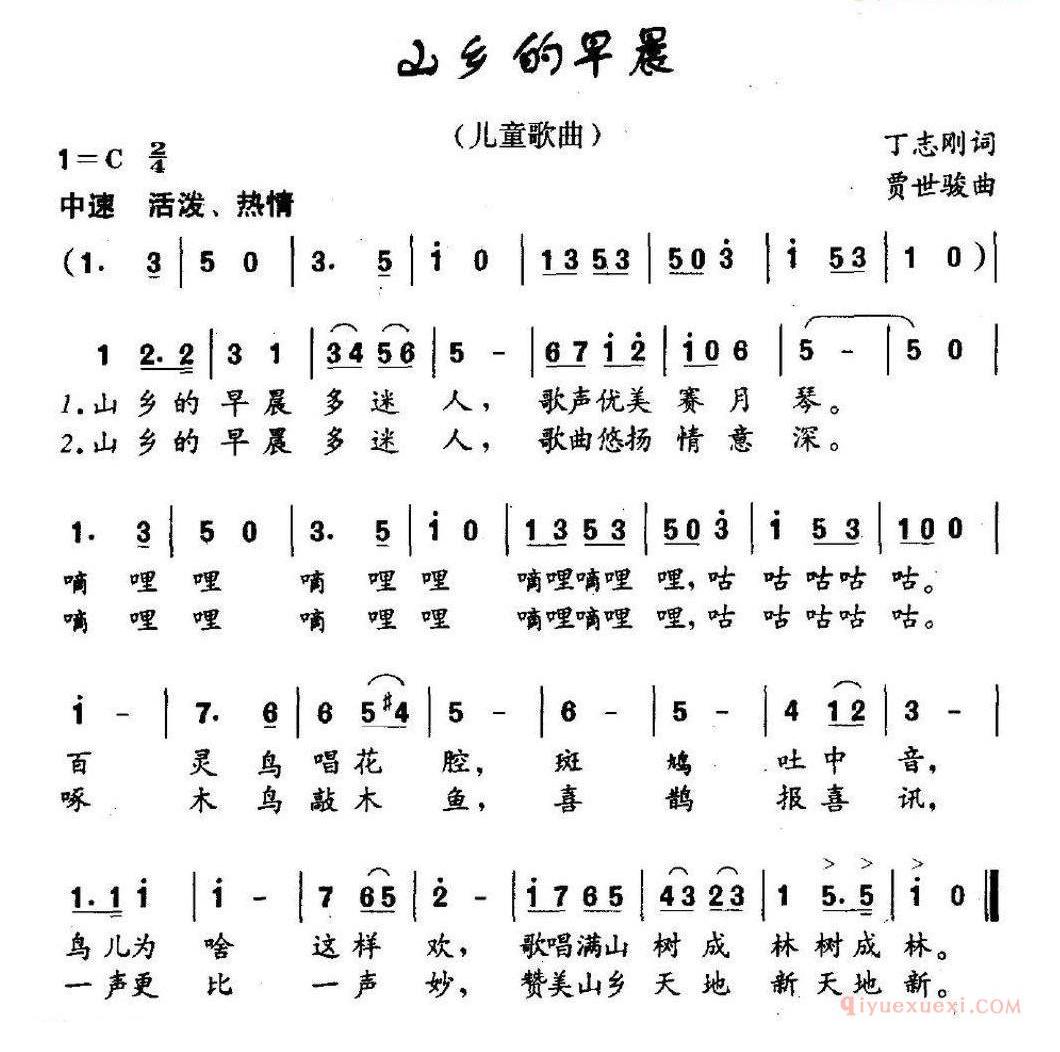 山乡的早晨
（儿童歌曲）
1=C 2/4
丁志刚词
中速 活泼、热情
贾世骏曲
(1. 3 | 5 0 | 3. 5 | i 0 | 1353 | 503 | i 53 | 1 0 )|
1 2.2 | 3 1 | 34 56 | 5 - | 67 i2 | i06 | 5 - | 5 0
1.山乡的早晨多迷人，歌声优美赛月琴。
2.山乡的早晨多迷人，歌曲悠扬情意深。
1. 3 | 5 0 | 3. 5 | i 0 | 1353 | 503 | i 53 | 100 |
嘀哩哩 嘀哩哩 嘀哩嘀哩哩，咕咕咕咕咕。
嘀哩哩 嘀哩哩 嘀哩嘀哩哩，咕咕咕咕咕。
i - | 7. 6 | 6 5#4 | 5 - | 6 - | 5 - | 4 12 | 3 - |
百灵鸟唱花腔，斑鸠吐中音，
啄木鸟敲木鱼，喜鹊报喜讯，
1.1 i | i - | 7 65 | 2 - | i765 | 43 23 | 1 5.5 | i 0 ‖
鸟儿为啥这样欢，歌唱满山树成林树成林。
一声更比一声妙，赞美山乡天地新天地新。
qiyuexuexi.com